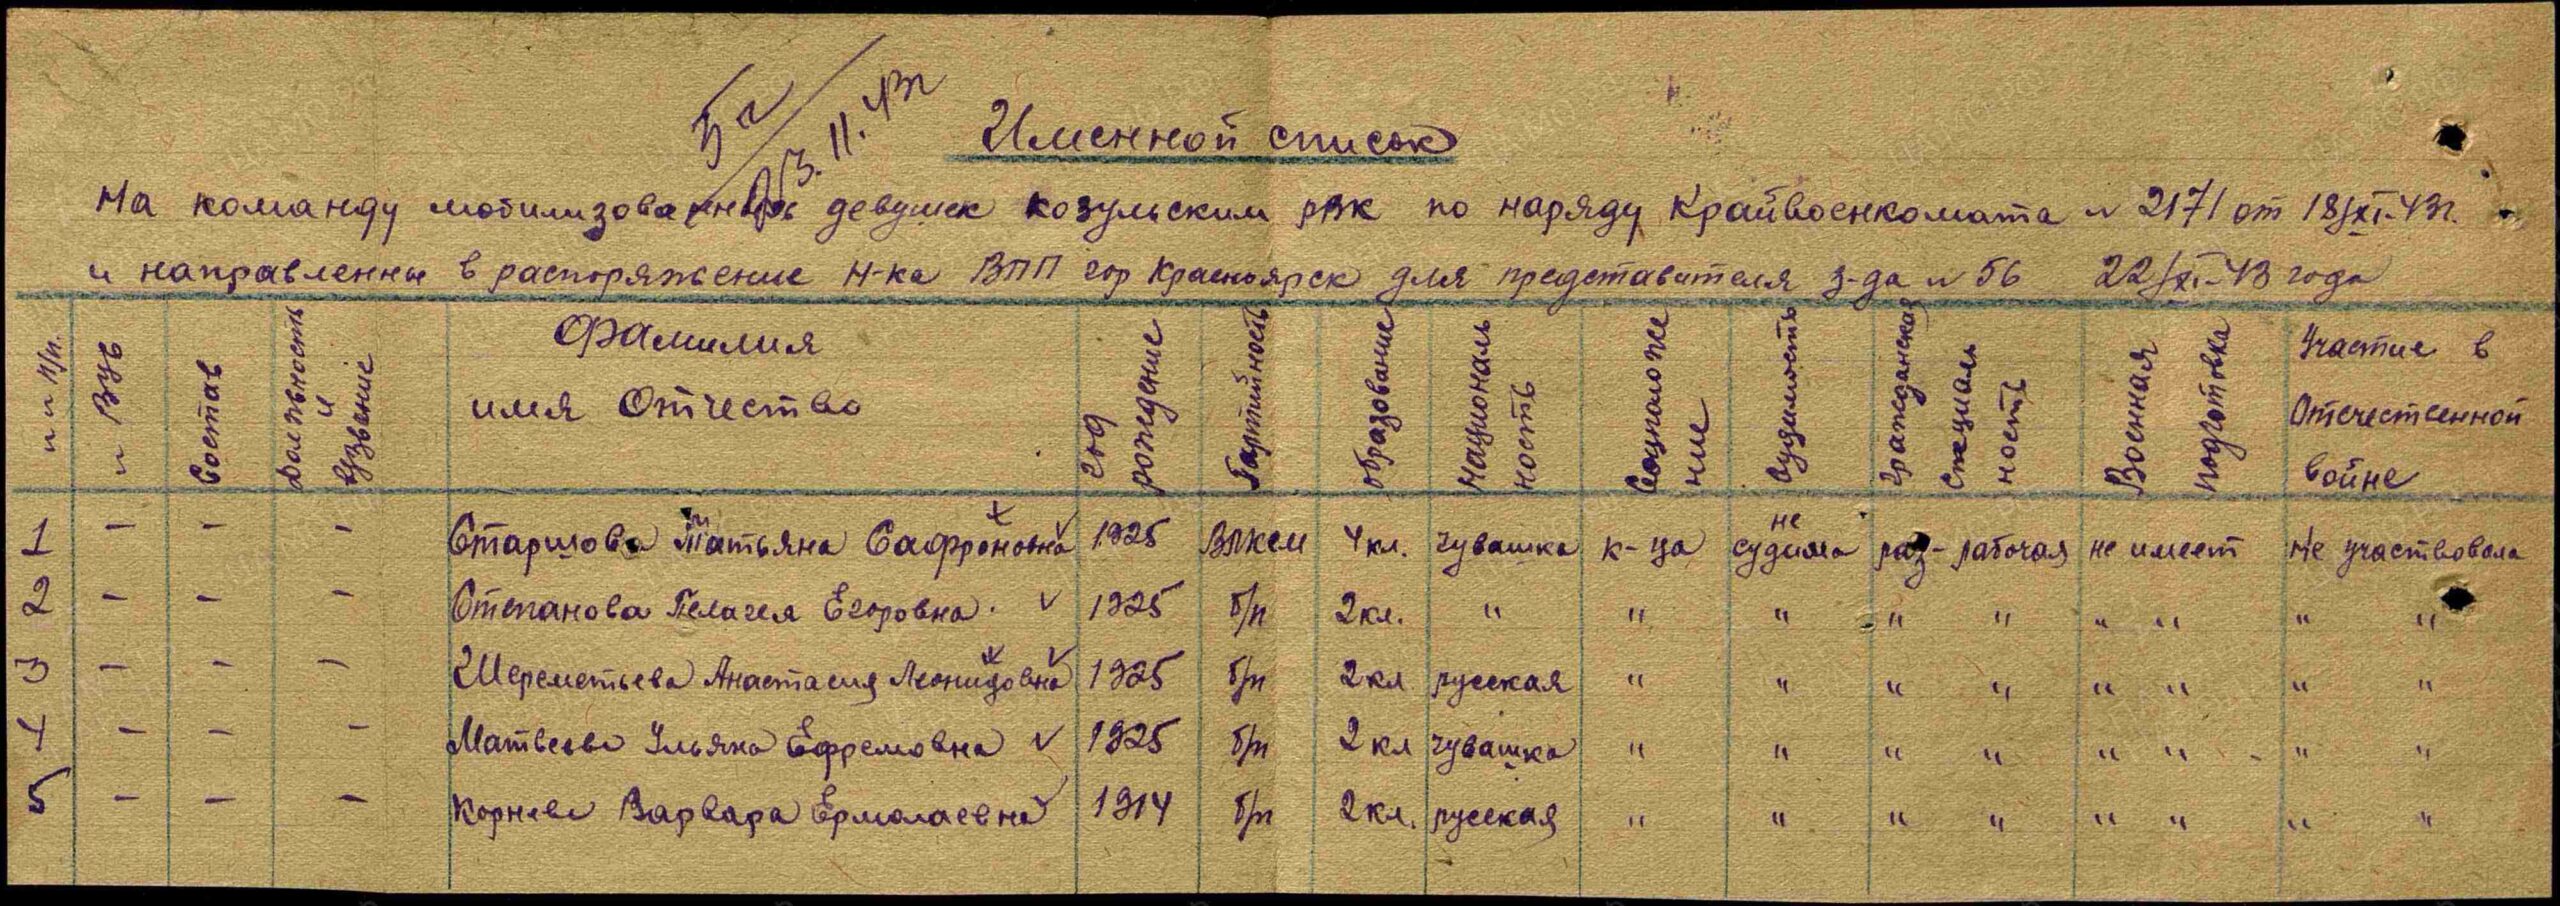 52
23.11.43г
Именной список
На команду мобилизованных девушек козульским рвк по наряду Крайвоенкомата № 2171 от 18/XI-43г.
и направленны в распоряжение Н-ка ВПП гор Красноярск для представителя з-да № 56 22/XI-43 года
№ № п/п. № ВУС Состав Должность и звание Фамилия имя Отчество год рождение Партийность образование Националь ность Соцположе ние Судимость Гражданская специаль ность Военная подготовка Участие в Отечественной войне
1 – – – Старилова Татьяна Сафроновна 1925 ВЛКСМ 4 кл. чувашка к-ца не судима раз-рабочая не имеет Не участвовала
2 – – – Степанова Пелагея Егоровна 1925 б/п 2 кл. " " " " " " " " "
3 – – – Шереметьева Анастасия Леонидовна 1925 б/п 2 кл русская " " " " " " " "
4 – – – Матвеева Ульяна Ефремовна 1925 б/п 2 кл чувашка " " " " " " " "
5 – – – Корнева Варвара Ермолаевна 1914 б/п 2 кл. русская " " " " " " " "